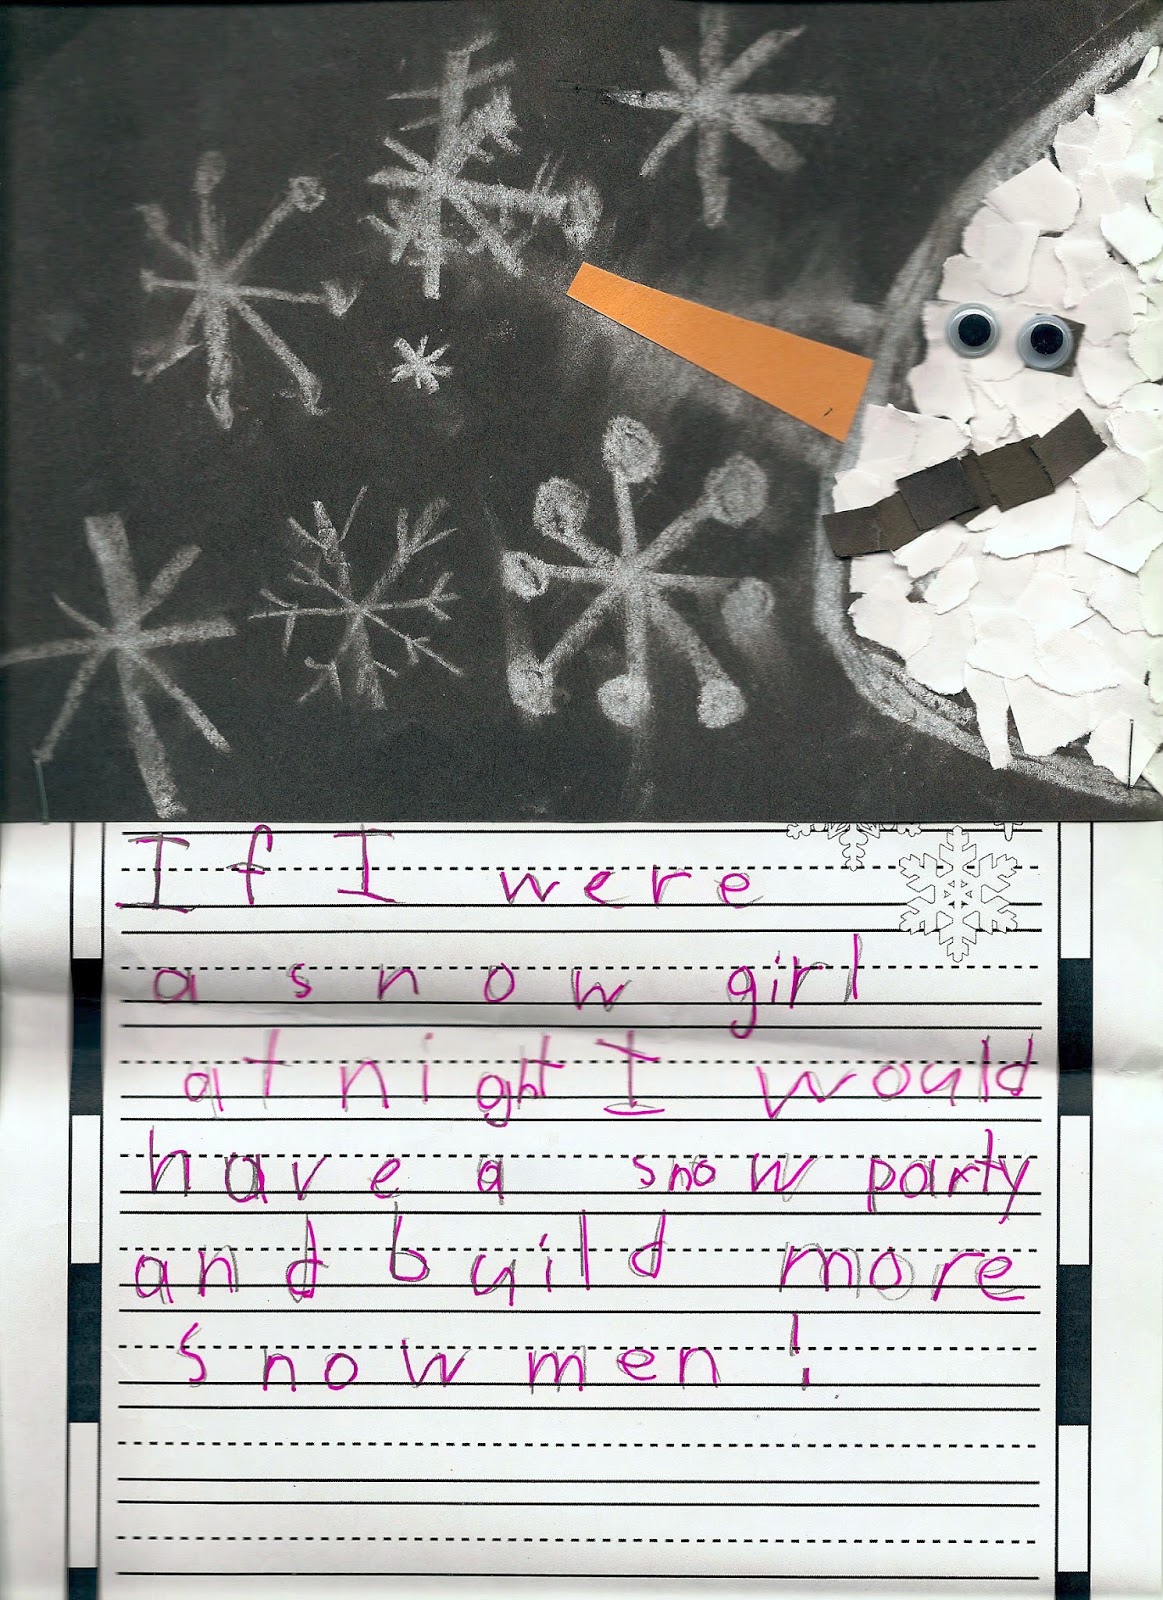 If I were
a snow girl
at night I would
have a snow party
and build more
snow men!